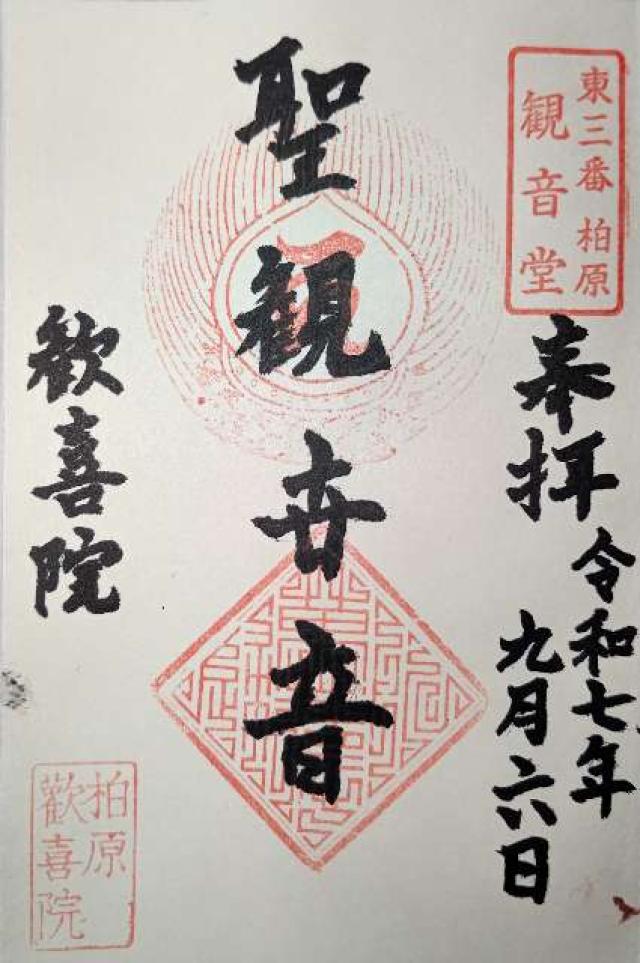 東三番 柏原
観音堂
奉拝
令和七年
九月六日
聖観世音
歓喜院
柏原
歡喜院